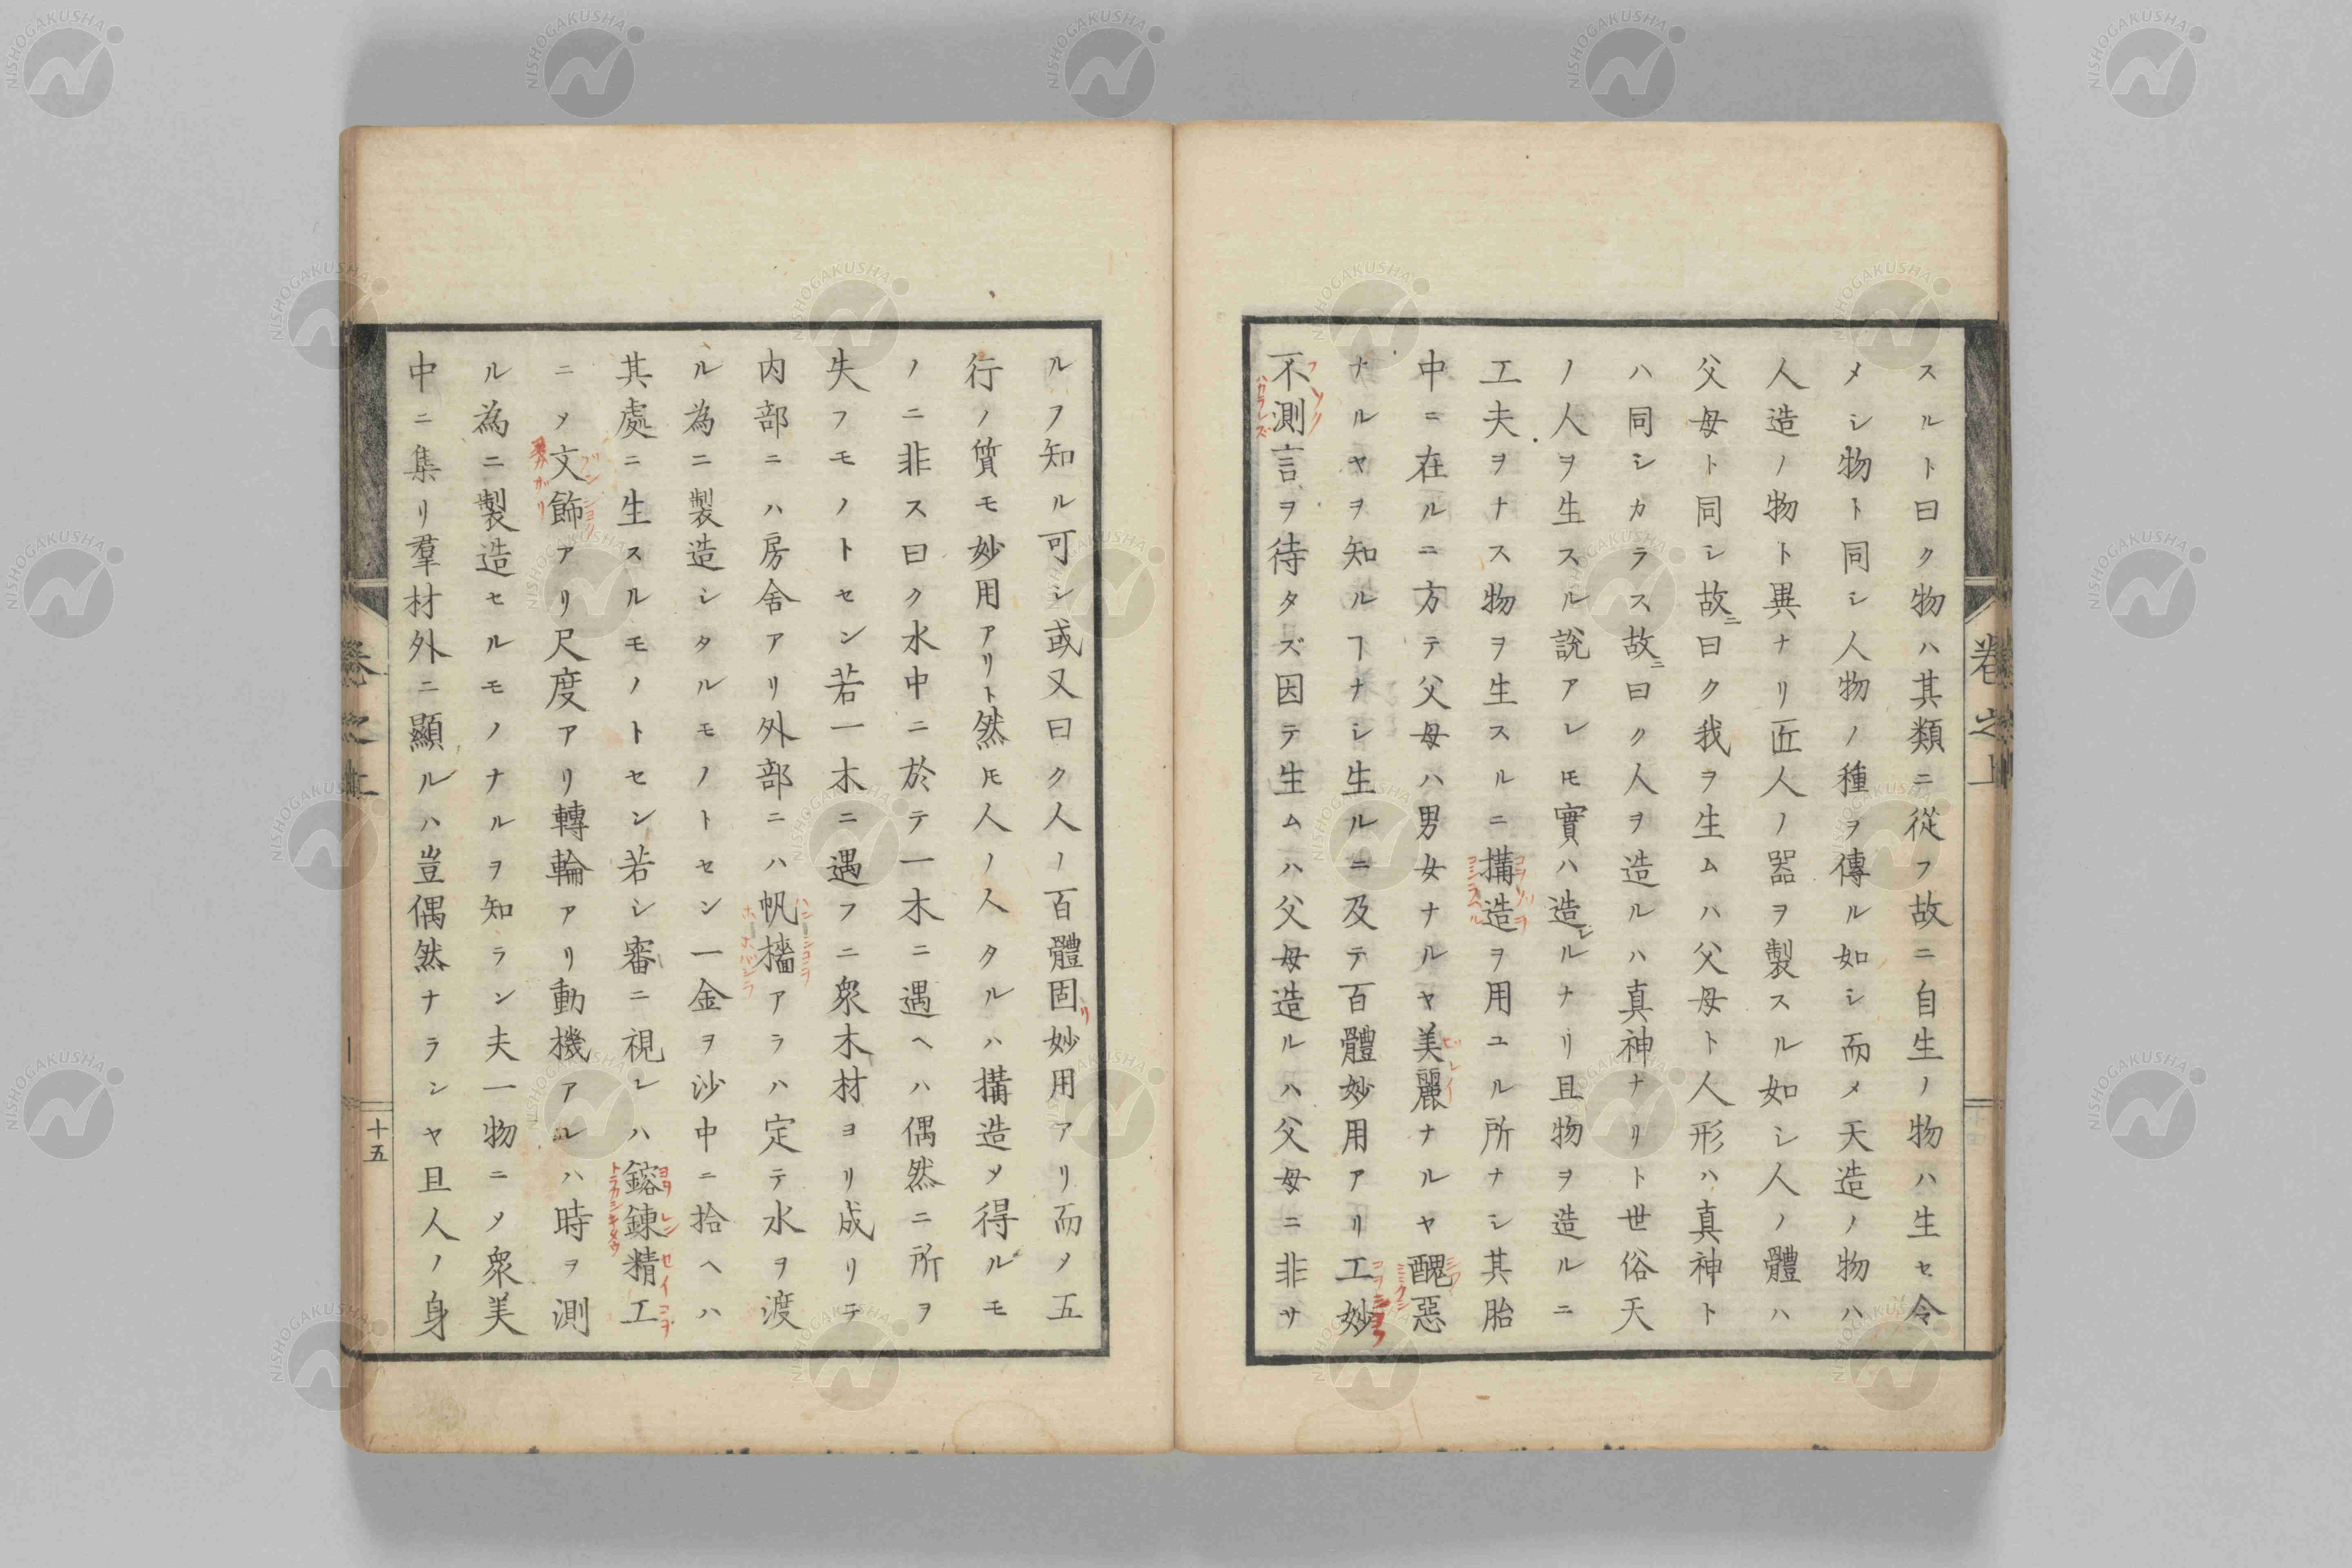 スルト曰ク物ハ其類ニ從フ故ニ自生ノ物ハ生セ令
メシ物ト同シ人物ノ種ヲ傳ル如シ而メ天造ノ物ハ
人造ノ物ト異ナリ匠人ノ器ヲ製スル如シ人ノ體ハ
父母ト同シ故ニ曰ク我ヲ生ムハ父母ト人形ハ真神ト
ハ同シカラス故ニ曰ク人ヲ造ルハ真神ナリト世俗天
ノ人ヲ生スル說アレ𪜈實ハ造シルナリ且物ヲ造ルニ
工夫ヲナス物ヲ生スルニ搆造ヲ用ユル所ナシ其胎
中ニ在ルニ方テ父母ハ男女ナルヤ美麗ナルヤ醜惡
ナルヤヲ知ルヿナシ生ルニ及テ百體妙用アリ工妙
不測言ヲ待タズ因テ生ムハ父母造ルハ父母ニ非サ
卷之上
ルヲ知ル可シ或又曰ク人ノ百體固リ妙用アリ而メ五
行ノ質モ妙用アリト然𪜈人ノ人タルハ搆造メ得ルモ
ノニ非ス曰ク水中ニ於テ一木ニ遇ヘハ偶然ニ所ヲ
失フモノトセン若一木ニ遇フニ衆木材ヨリ成リテ
内部ニハ房舍アリ外部ニハ帆檣アラハ定テ水ヲ渡
ル為ニ製造シタルモノトセン一金ヲ沙中ニ拾ヘハ
其處ニ生スルモノトセン若シ審ニ視レハ鎔錬精工
ニメ文飾アリ尺度アリ轉輪アリ動機アルハ時ヲ測
ル為ニ製造セルモノナルヲ知ラン夫一物ニメ衆美
中ニ集リ羣材外ニ顯ルハ豈偶然ナランヤ且人ノ身
卷之上
十五
NISHOGAKUSHA